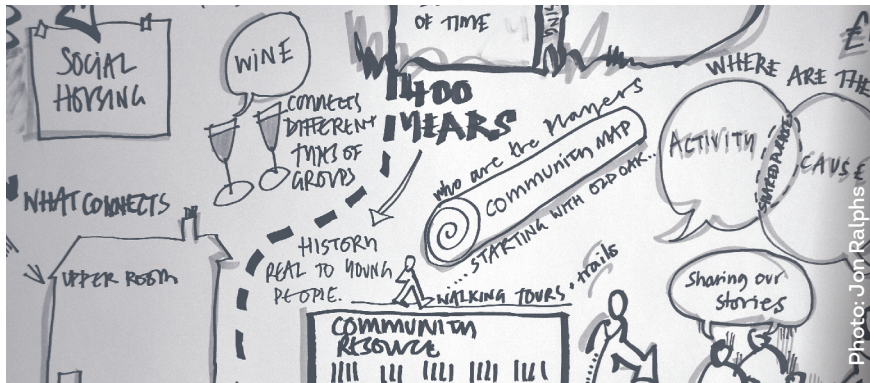 OF TIME
SOCIAL
HOUSING
WINE
CONNECTS
DIFFERENT
TYPES OF
GROUPS
400
YEARS
WHERE ARE THE
who are the
COMMUNITY MAP
....STARTING WITH OLD OAK...
ACTIVITY
CAUSE
WHAT CONNECTS
UPPER ROOM
HISTORY
REAL TO YOUNG
PEOPLE.
WALKING TOURS + trails
Sharing our
stories
COMMUNITY
RESOURCE
£
Photo: Jon Ralphs